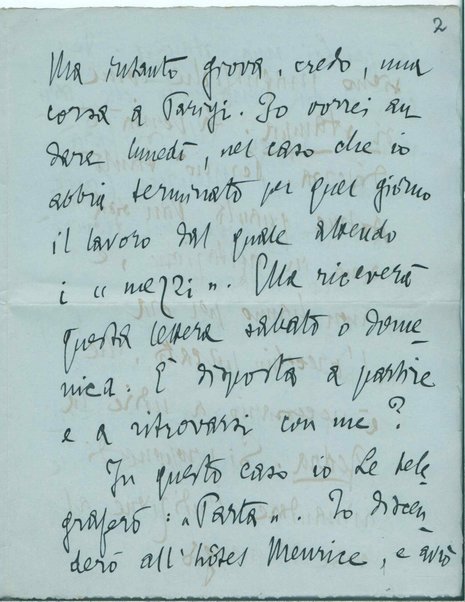 2
Ma intanto giova, credo, una
corsa a Parigi. Io vorrei an
dare lunedì, nel caso che io
abbia terminato per quel giorno
il lavoro dal quale attendo
i "mezzi". Ella riceverà
questa lettera sabato o dome-
nica. È disposta a partire
e a ritrovarsi con me?
In questo caso io Le tele-
graferò: "Parta". Io discen-
derò all'hôtel Meurice, e avrò